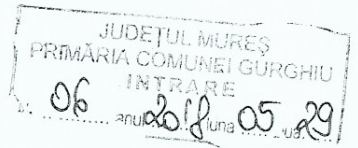 JUDEȚUL MUREȘ
PRIMĂRIA COMUNEI GURGHIU
INTRARE
06 anul 2018 luna 05 ziua 29